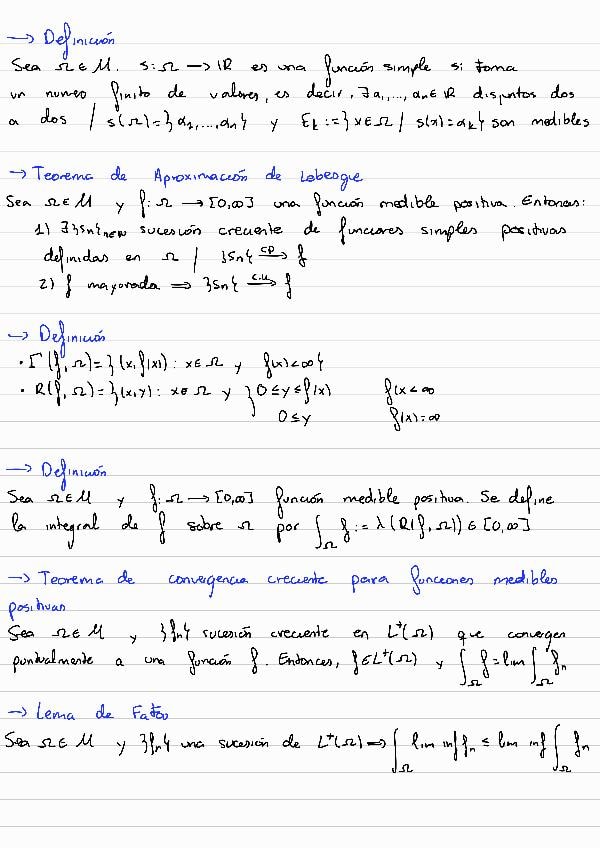 → Definición
Sea Ω∈M. s: Ω → ℝ es una función simple si toma
un numero finito de valores, es decir, ∃ a₁,..., aₙ∈ℝ distintos dos
a dos / s(Ω)={a₁,...,aₙ} y Eₖ:={x∈Ω / s(x)=aₖ} son medibles
→ Teorema de Aproximación de Lebesgue
Sea Ω∈M y f: Ω → [0,∞] una función medible positiva. Entonces:
1) ∃{sₙ}ₙ∈ℕ sucesión creciente de funciones simples positivas
definidas en Ω / {sₙ} –c.p.→ f
2) f mayorada ⟹ {sₙ} –c.u.→ f
→ Definición
· Γ(f,Ω)={(x,f(x)): x∈Ω y f(x)<∞}
· R(f,Ω)={(x,y): x∈Ω y { 0≤y≤f(x) f(x<∞
0≤y f(x)=∞
→ Definición
Sea Ω∈M y f: Ω → [0,∞] función medible positiva. Se define
la integral de f sobre Ω por ∫_Ω f := λ(R(f,Ω)) ∈ [0,∞]
→ Teorema de convergencia creciente para funciones medibles
positivas
Sea Ω∈M y {fₙ} sucesión creciente en L⁺(Ω) que convergen
puntualmente a una función f. Entonces, f∈L⁺(Ω) y ∫_Ω f = lim ∫_Ω fₙ
→ Lema de Fatou
Sea Ω∈M y {fₙ} una sucesión de L⁺(Ω) ⟹ ∫_Ω lim inf fₙ ≤ lim inf ∫_Ω fₙ